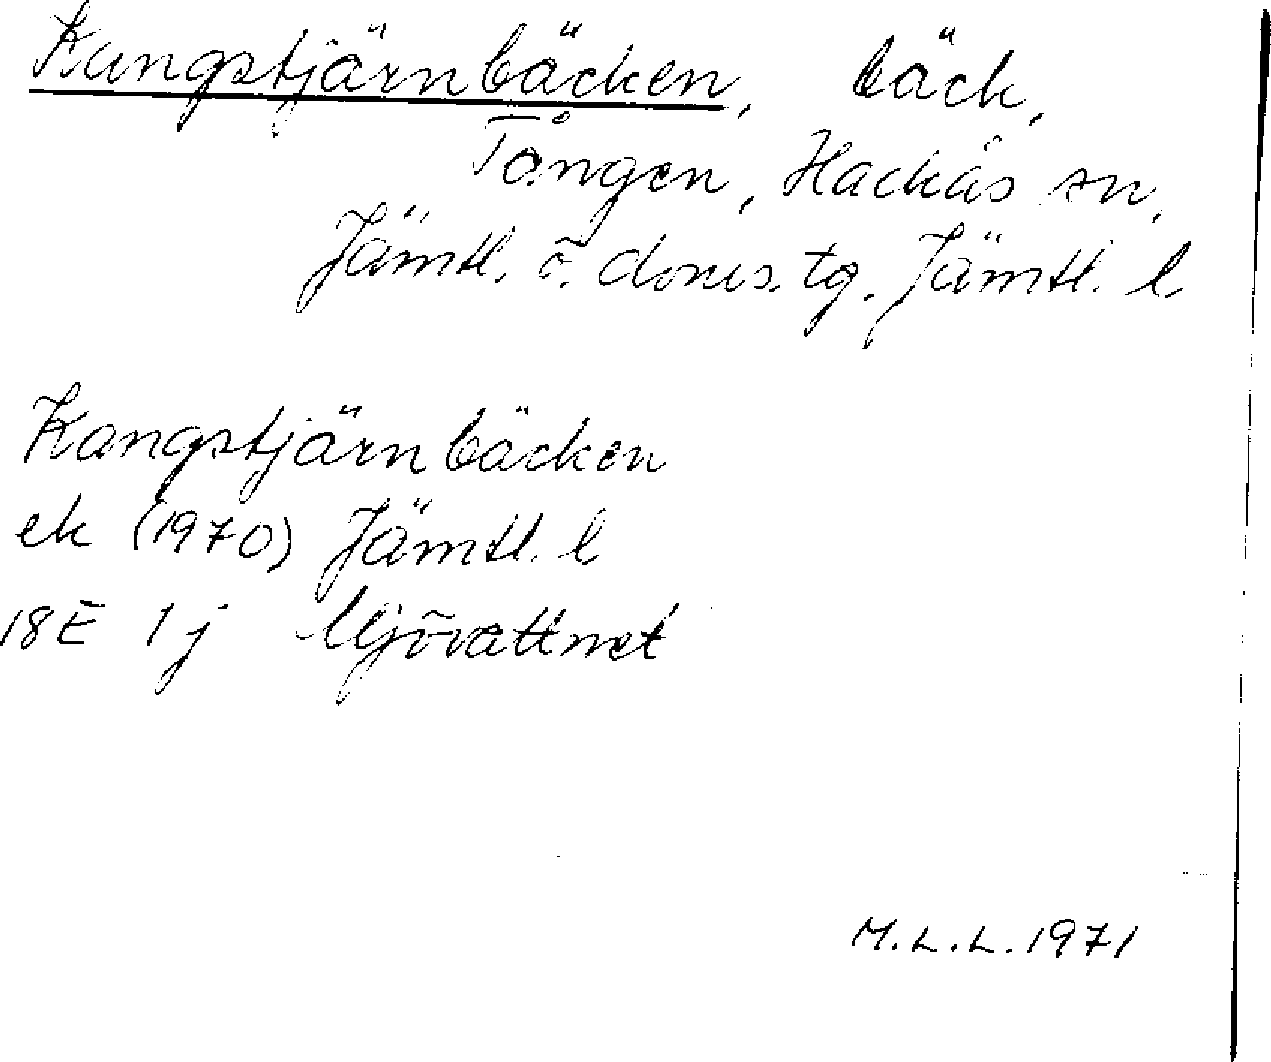 Kangstjärnbäcken, bäck,
Tången, Hackås sn,
Jämtl. ö. doms. tg. Jämtl. l
Kangstjärnbäcken
ek (1970) Jämtl. l
18E 1j Mjövattnet
M.L.L. 1971